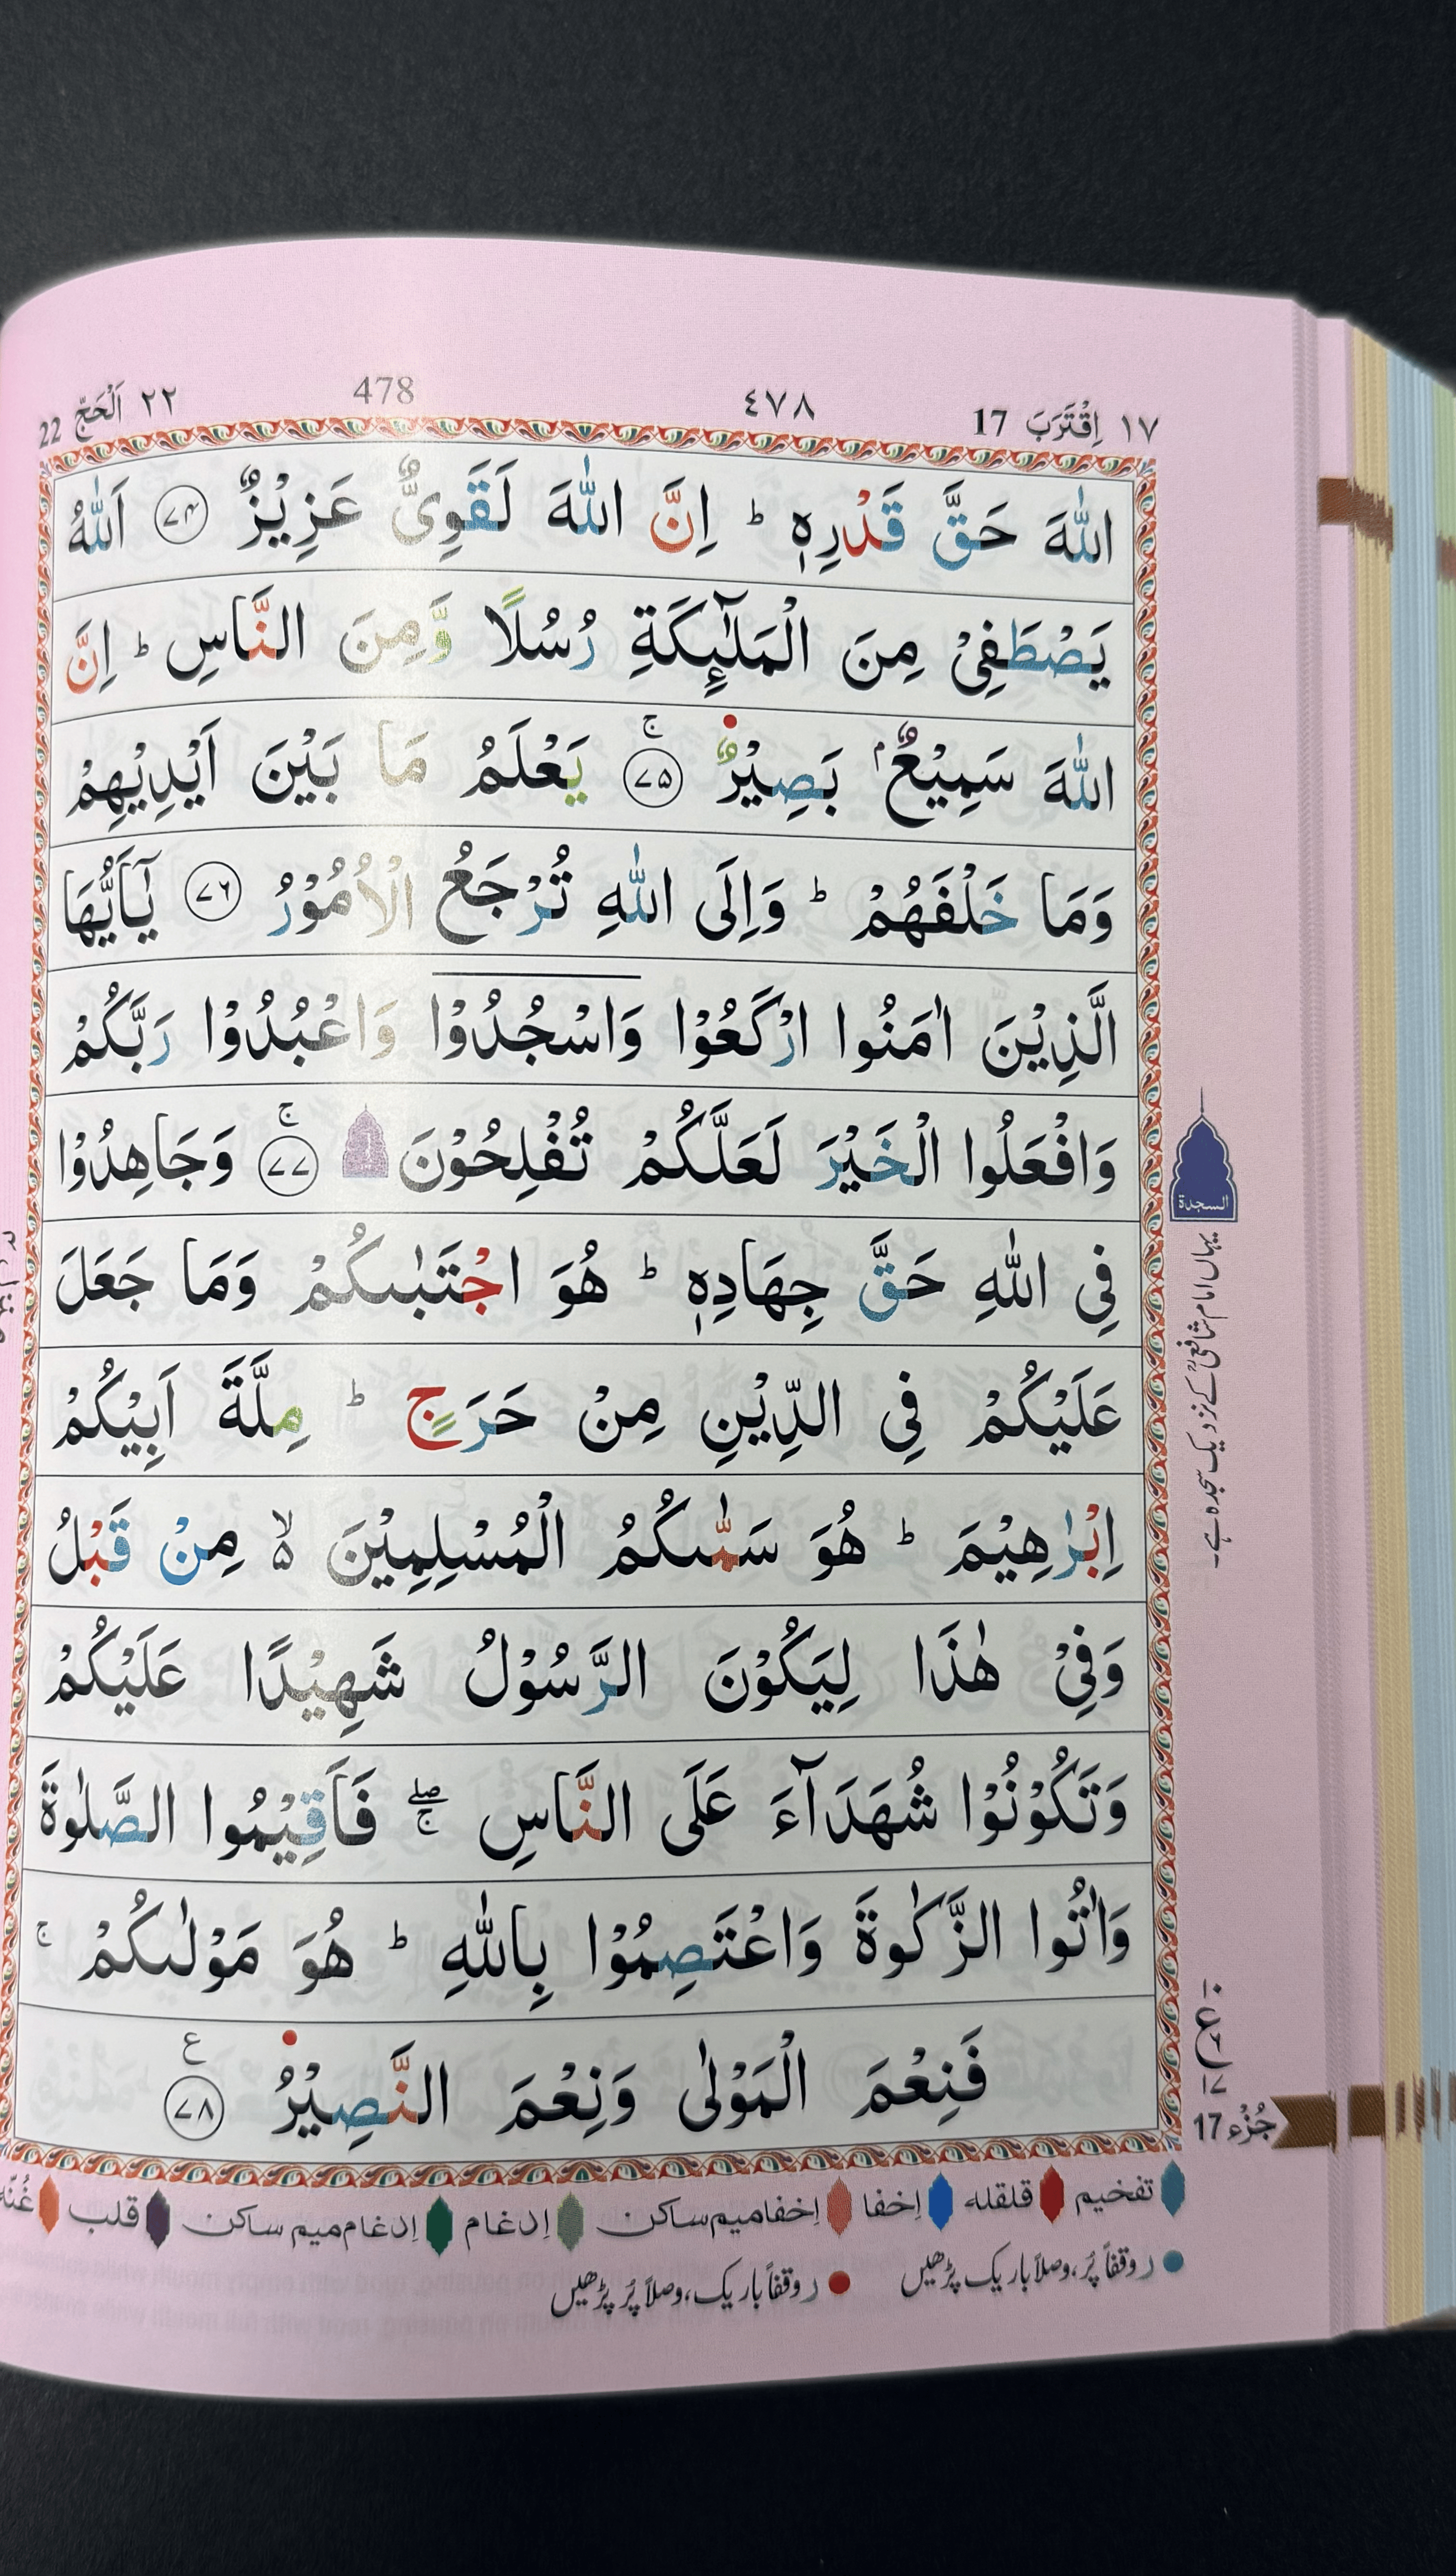 ١٧ اِقْتَرَبَ 17
٤٧٨
478
٢٢ اَلْحَجّ 22
اللّٰهَ حَقَّ قَدْرِهٖ ؕ اِنَّ اللّٰهَ لَقَوِىٌّ عَزِيْزٌ ﴿۷۴﴾ اَللّٰهُ
يَصْطَفِىْ مِنَ الْمَلٰٓئِكَةِ رُسُلًا وَّمِنَ النَّاسِ ؕ اِنَّ
اللّٰهَ سَمِيْعٌۢ بَصِيْرٌ ﴿۷۵﴾ۚ يَعْلَمُ مَا بَيْنَ اَيْدِيْهِمْ
وَمَا خَلْفَهُمْ ؕ وَاِلَى اللّٰهِ تُرْجَعُ الْاُمُوْرُ ﴿۷۶﴾ يٰۤاَيُّهَا
الَّذِيْنَ اٰمَنُوا ارْكَعُوْا وَاسْجُدُوْا وَاعْبُدُوْا رَبَّكُمْ
وَافْعَلُوا الْخَيْرَ لَعَلَّكُمْ تُفْلِحُوْنَ ۩ ﴿۷۷﴾ۚ وَجَاهِدُوْا
فِى اللّٰهِ حَقَّ جِهَادِهٖ ؕ هُوَ اجْتَبٰىكُمْ وَمَا جَعَلَ
عَلَيْكُمْ فِى الدِّيْنِ مِنْ حَرَجٍ ؕ مِلَّةَ اَبِيْكُمْ
اِبْرٰهِيْمَ ؕ هُوَ سَمّٰىكُمُ الْمُسْلِمِيْنَ ۙ۬ مِنْ قَبْلُ
وَفِىْ هٰذَا لِيَكُوْنَ الرَّسُوْلُ شَهِيْدًا عَلَيْكُمْ
وَتَكُوْنُوْا شُهَدَآءَ عَلَى النَّاسِ ۖۚ فَاَقِيْمُوا الصَّلٰوةَ
وَاٰتُوا الزَّكٰوةَ وَاعْتَصِمُوْا بِاللّٰهِ ؕ هُوَ مَوْلٰىكُمْ ۚ
فَنِعْمَ الْمَوْلٰى وَنِعْمَ النَّصِيْرُ ﴿۷۸﴾ ع
السجدة
یہاں امام شافعیؒ کے نزدیک سجدہ ہے۔
ع
جُزْء 17
تفخیم قلقله إخفا إخفامیم ساکن إدغام إدغام میم ساکن قلب غُنّه
ر وقفاً پُر، وصلاً باریک پڑھیں ر وقفاً باریک، وصلاً پُر پڑھیں